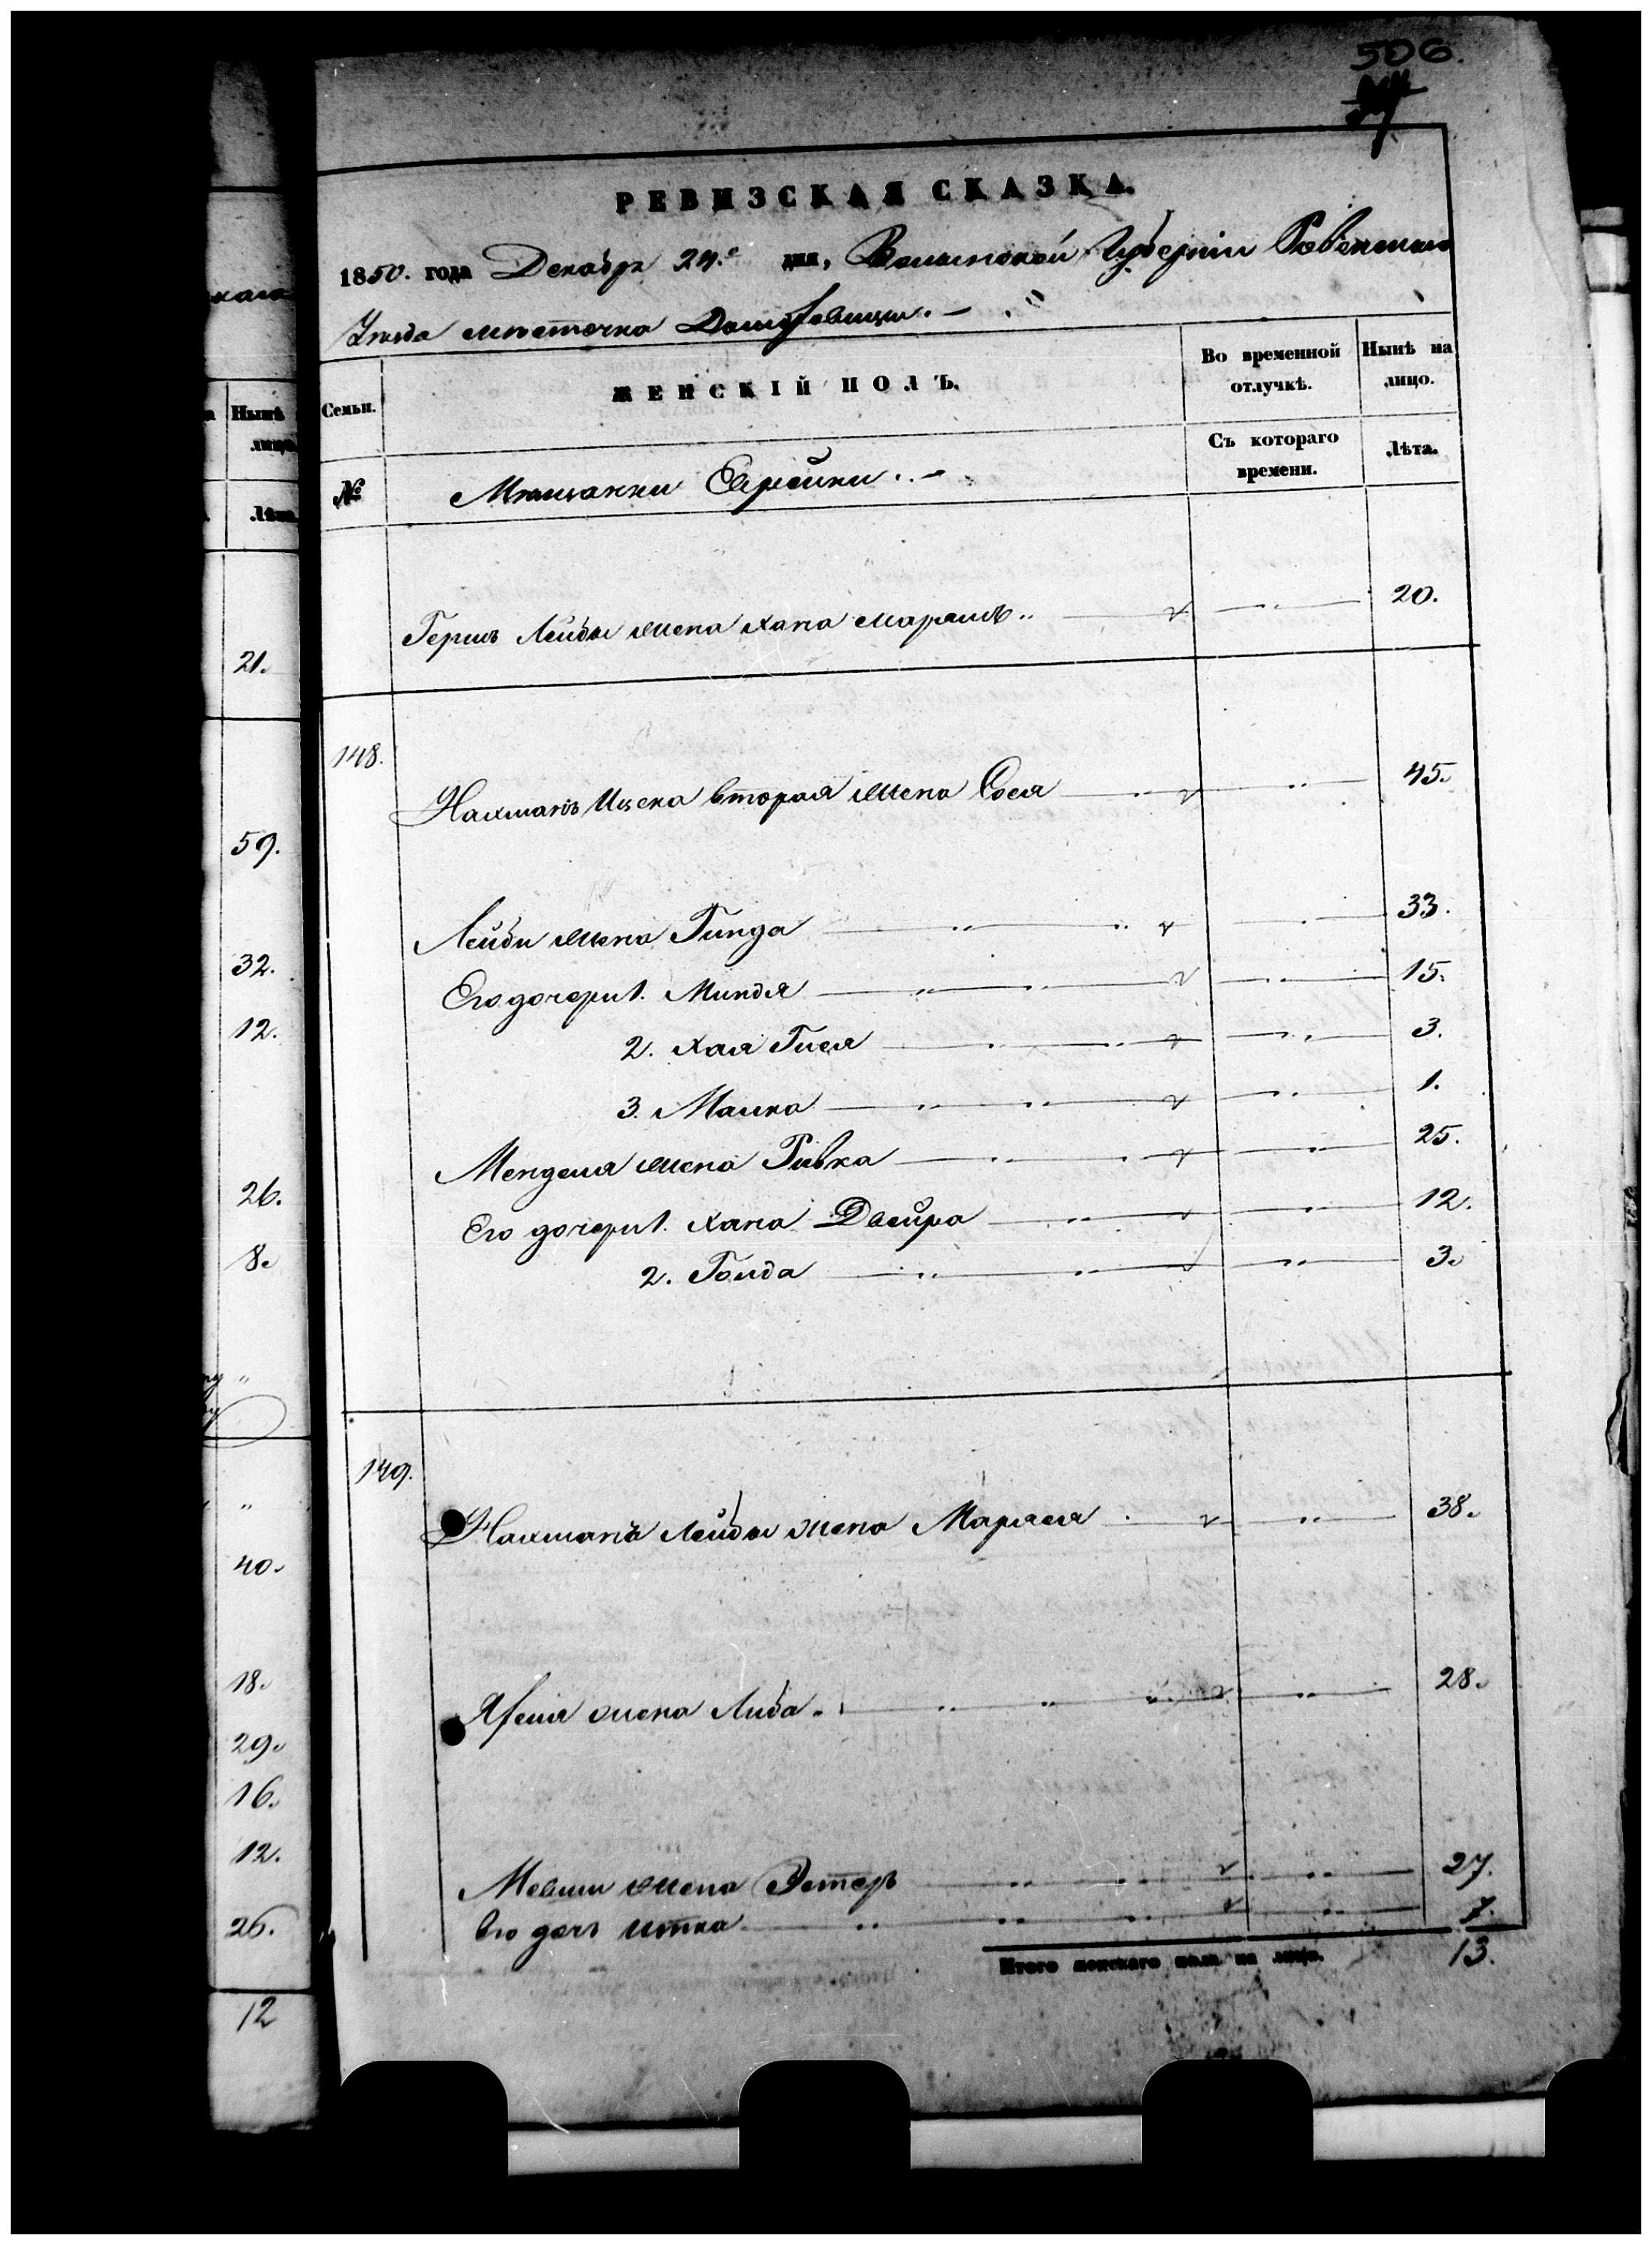 506.
РЕВИЗСКАЯ СКАЗКА.
1850. года Декабря 24.го дня, Волынской Губерніи Ровенскаго
Уезда местечка Домбровицы.
каго
Нынѣ
лицо
Лѣта
21.
59.
32.
12.
26.
8.
40.
18.
29.
16.
12.
26.
12
Семьи.
ЖЕНСКІЙ ПОЛЪ.
Во временной отлучкѣ.
Нынѣ на лицо.
№
Мещанки Еврейки
Съ котораго времени.
Лѣта.
Гершъ Лейбы жена Хана Маріамъ 20.
148.
Нахманъ Ицека вторая жена Сося 45.
Лейбы жена Гинда 33.
Его дочери 1. Миндля 15.
2. Хая Гися 3.
3. Малка 1.
Менделя жена Ривка 25.
Его дочери 1. Хана Двейра 12.
2. Голда 3.
149.
Нахмана Лейбы жена Маряся 38.
жена Либа 28.
Мовши жена Эстеръ 27.
Его дочь Итка 7.
Итого женскаго пола на лицо. 13.